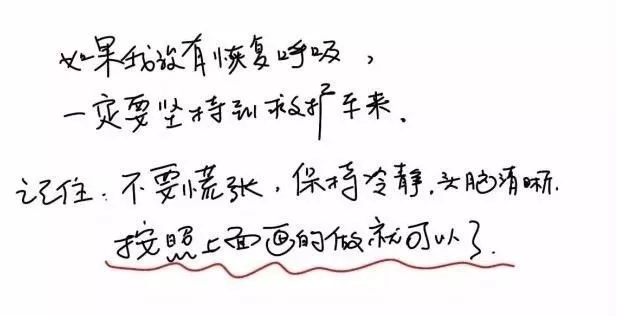 如果我没有恢复呼吸，
一定要坚持到救护车来.
记住：不要慌张，保持冷静，头脑清晰.
按照上面画的做就可以了.